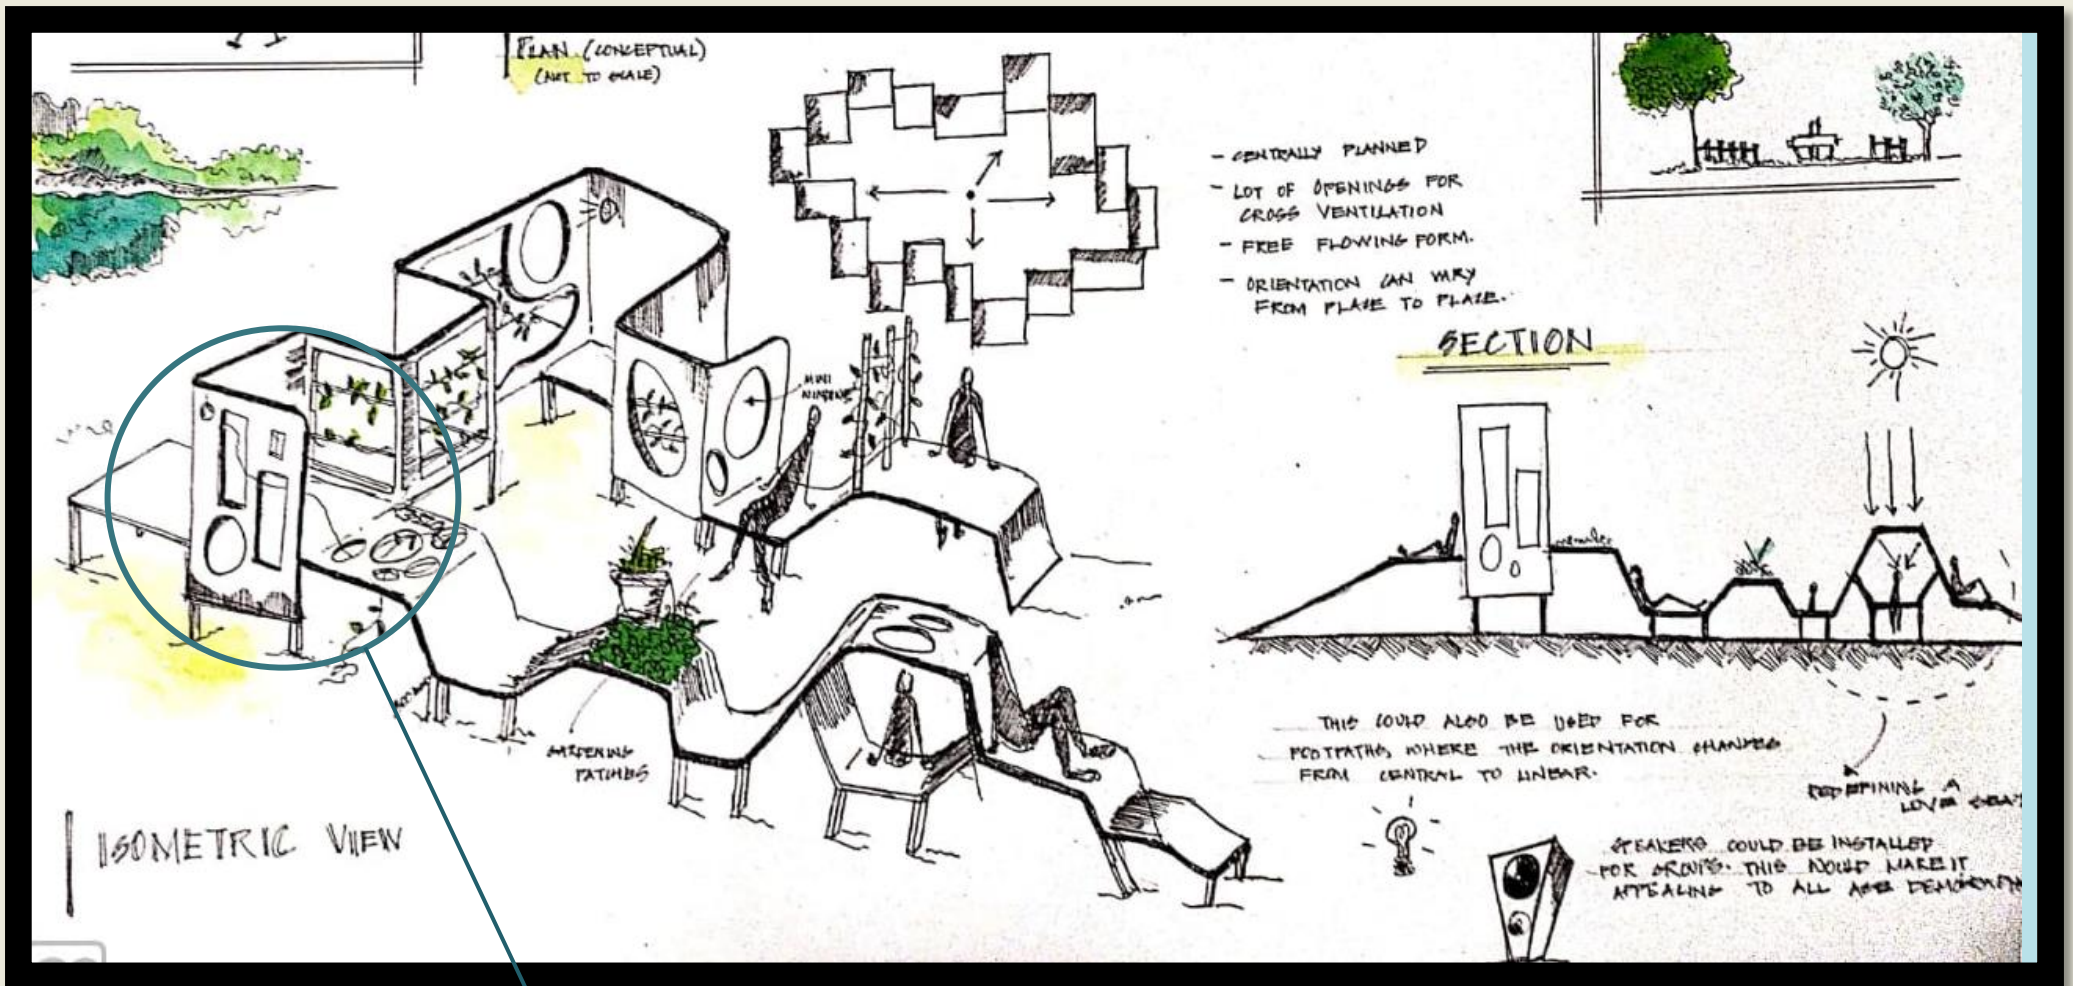 PLAN (CONCEPTUAL)
(NOT TO SCALE)
- CENTRALLY PLANNED
- LOT OF OPENINGS FOR
CROSS VENTILATION
- FREE FLOWING FORM.
- ORIENTATION CAN VARY
FROM PLACE TO PLACE.
SECTION
MINI
GARDENING
PATCHES
ISOMETRIC VIEW
THIS COULD ALSO BE USED FOR
FOOTPATHS, WHERE THE ORIENTATION CHANGES
FROM CENTRAL TO LINEAR.
REDEFINING A
LOVE
SPEAKERS COULD BE INSTALLED
FOR GROUPS. THIS WOULD MAKE IT
APPEALING TO ALL AGE